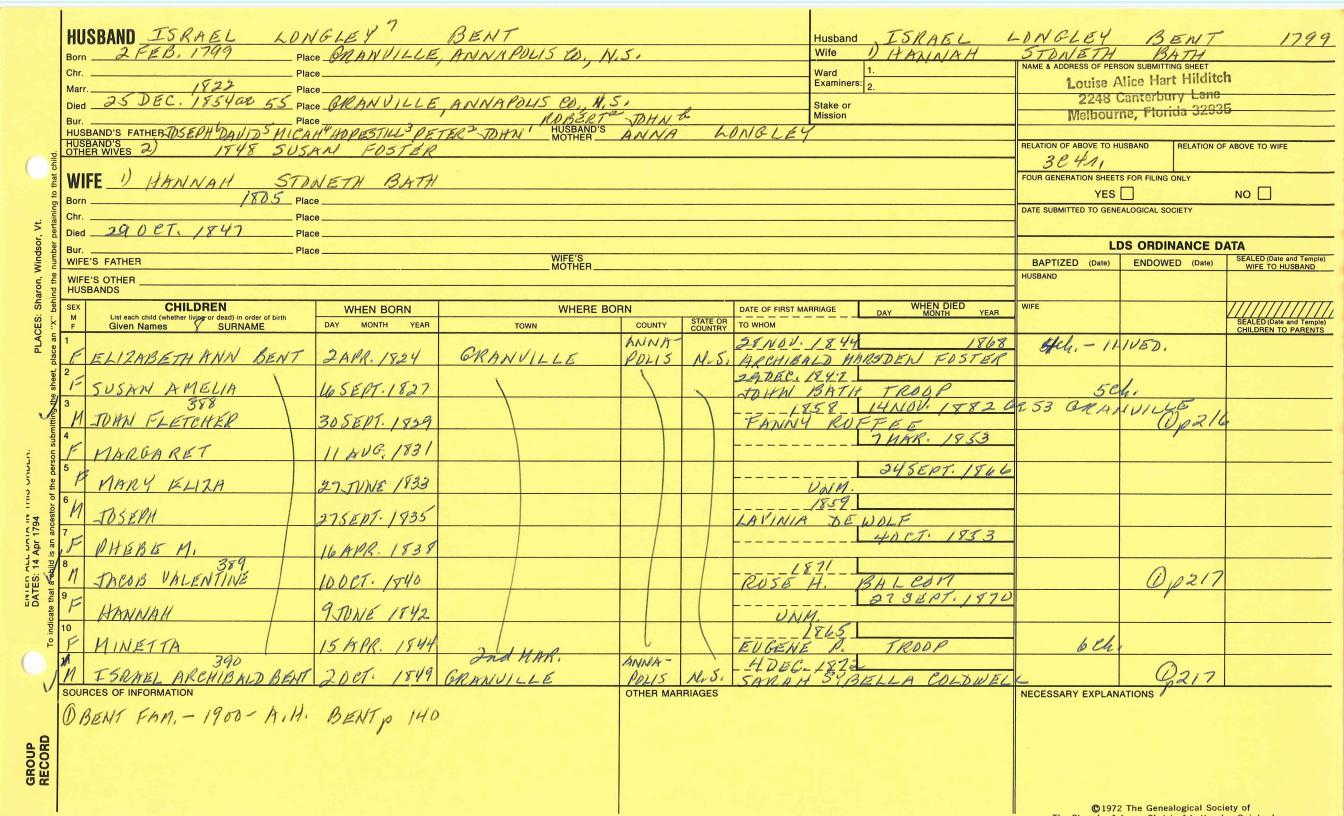 HUSBAND ISRAEL LONGLEY 7 BENT
Born 2 FEB. 1799 Place GRANVILLE, ANNAPOLIS CO., N.S.
Chr. Place
Marr. 1822 Place
Died 25 DEC. 1854 ae 55 Place GRANVILLE, ANNAPOLIS CO., N.S.
Bur. Place ROBERT JOHN
HUSBAND'S FATHER JOSEPH 6 DAVID 5 MICAH 4 HOPESTILL 3 PETER 2 JOHN 1 HUSBAND'S MOTHER ANNA LONGLEY
HUSBAND'S OTHER WIVES 2) 1848 SUSAN FOSTER
WIFE 1) HANNAH STONETH BATH
Born 1805 Place
Chr. Place
Died 29 OCT. 1847 Place
Bur. Place
WIFE'S FATHER WIFE'S MOTHER
WIFE'S OTHER HUSBANDS
Husband ISRAEL LONGLEY BENT 1799
Wife 1) HANNAH STONETH BATH
Ward Examiners: 1.
2.
Stake or Mission
NAME & ADDRESS OF PERSON SUBMITTING SHEET
Louise Alice Hart Hilditch
2248 Canterbury Lane
Melbourne, Florida 32935
RELATION OF ABOVE TO HUSBAND RELATION OF ABOVE TO WIFE
3C4r,
FOUR GENERATION SHEETS FOR FILING ONLY
YES NO
DATE SUBMITTED TO GENEALOGICAL SOCIETY
LDS ORDINANCE DATA
BAPTIZED (Date) ENDOWED (Date) SEALED (Date and Temple) WIFE TO HUSBAND
HUSBAND
WIFE
SEALED (Date and Temple) CHILDREN TO PARENTS
SEX M F CHILDREN WHEN BORN WHERE BORN DATE OF FIRST MARRIAGE WHEN DIED
List each child (whether living or dead) in order of birth
Given Names 8 SURNAME DAY MONTH YEAR TOWN COUNTY STATE OR COUNTRY TO WHOM DAY MONTH YEAR
1 F ELIZABETH ANN BENT 2 APR. 1824 GRANVILLE ANNA-POLIS N.S. 28 NOV. 1844 1868 ARCHIBALD MARSDEN FOSTER 4ch. - 1 LIVED.
2 F SUSAN AMELIA 16 SEPT. 1827 29 DEC. 1847 JOHN BATH TROOP 5ch.
3 M JOHN FLETCHER 388 30 SEPT. 1829 1858 14 NOV. 1882 ae 53 GRANVILLE FANNY RUFFEE ① p216
4 F MARGARET 11 AUG. 1831 7 MAR. 1853
5 F MARY ELIZA 27 JUNE 1833 24 SEPT. 1866 UNM.
6 M JOSEPH 27 SEPT. 1835 1859 LAVINIA DE WOLF
7 F PHEBE M. 16 APR. 1838 4 OCT. 1853
8 M JACOB VALENTINE 389 10 OCT. 1840 1871 ROSE H. BALCOM ① p217
9 F HANNAH 9 JUNE 1842 27 SEPT. 1870 UNM.
10 F MINETTA 15 APR. 1844 1865 EUGENE P. TROOP 6 Ch.
2nd MAR.
M ISRAEL ARCHIBALD BENT 390 2 OCT. 1849 GRANVILLE ANNA-POLIS N.S. 4 DEC. 1872 SARAH SIBELLA COLDWELL ① p217
SOURCES OF INFORMATION OTHER MARRIAGES NECESSARY EXPLANATIONS
① BENT FAM. - 1900 - A.H. BENT p 140
©1972 The Genealogical Society of
PLACES: Sharon, Windsor, Vt.
DATES: 14 Apr 1794
To indicate that a child is an ancestor of the person submitting the sheet, place an "X" behind the number pertaining to that child.
GROUP RECORD